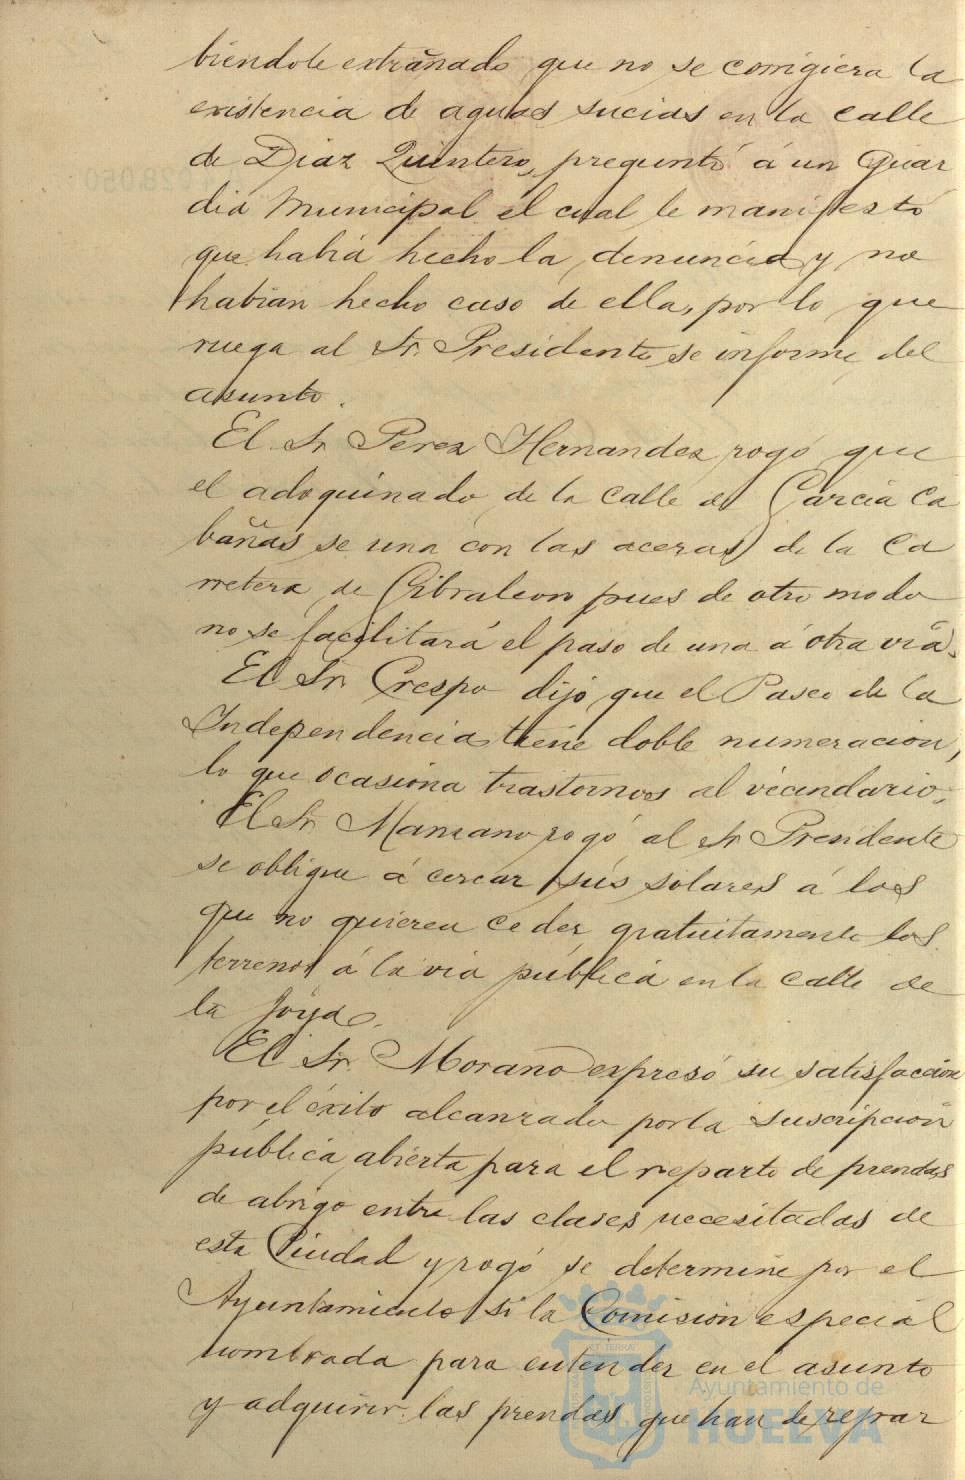 biéndole extrañado que no se corrigiera la
existencia de aguas sucias en la calle
de Diaz Quintero, preguntó á un Guar
dia Municipal el cual le manifestó
que habia hecho la denuncia y no
habian hecho caso de ella, por lo que
ruega al Sr. Presidente se informe del
asunto.
El Sr Perez Hernandez rogó que
el adoquinado de la calle de Garcia Ca
bañas se una con las aceras de la Ca
rretera de Gibraleon pues de otro modo
no se facilitará el paso de una á otra via.
El Sr. Crespo dijó que el Paseo de la
Independencia tiene doble numeracion,
lo que ocasiona trastornos al vecindario.
El Sr Manzano rogó al Sr Presidente
se obligue á cercar sus solares á los
que no quieren ceder gratuitamente los
terrenos á la via pública en la calle de
la Joya.
El Sr. Morano expresó su satisfacción
por el éxito alcanzado por la suscripción
pública abierta para el reparto de prendas
de abrigo entre las clases necesitadas de
esta Ciudad y rogó se determine por el
Ayuntamiento si la Comisión especial
nombrada para entender en el asunto
y adquirir las prendas que han de repar
Ayuntamiento de
HUELVA